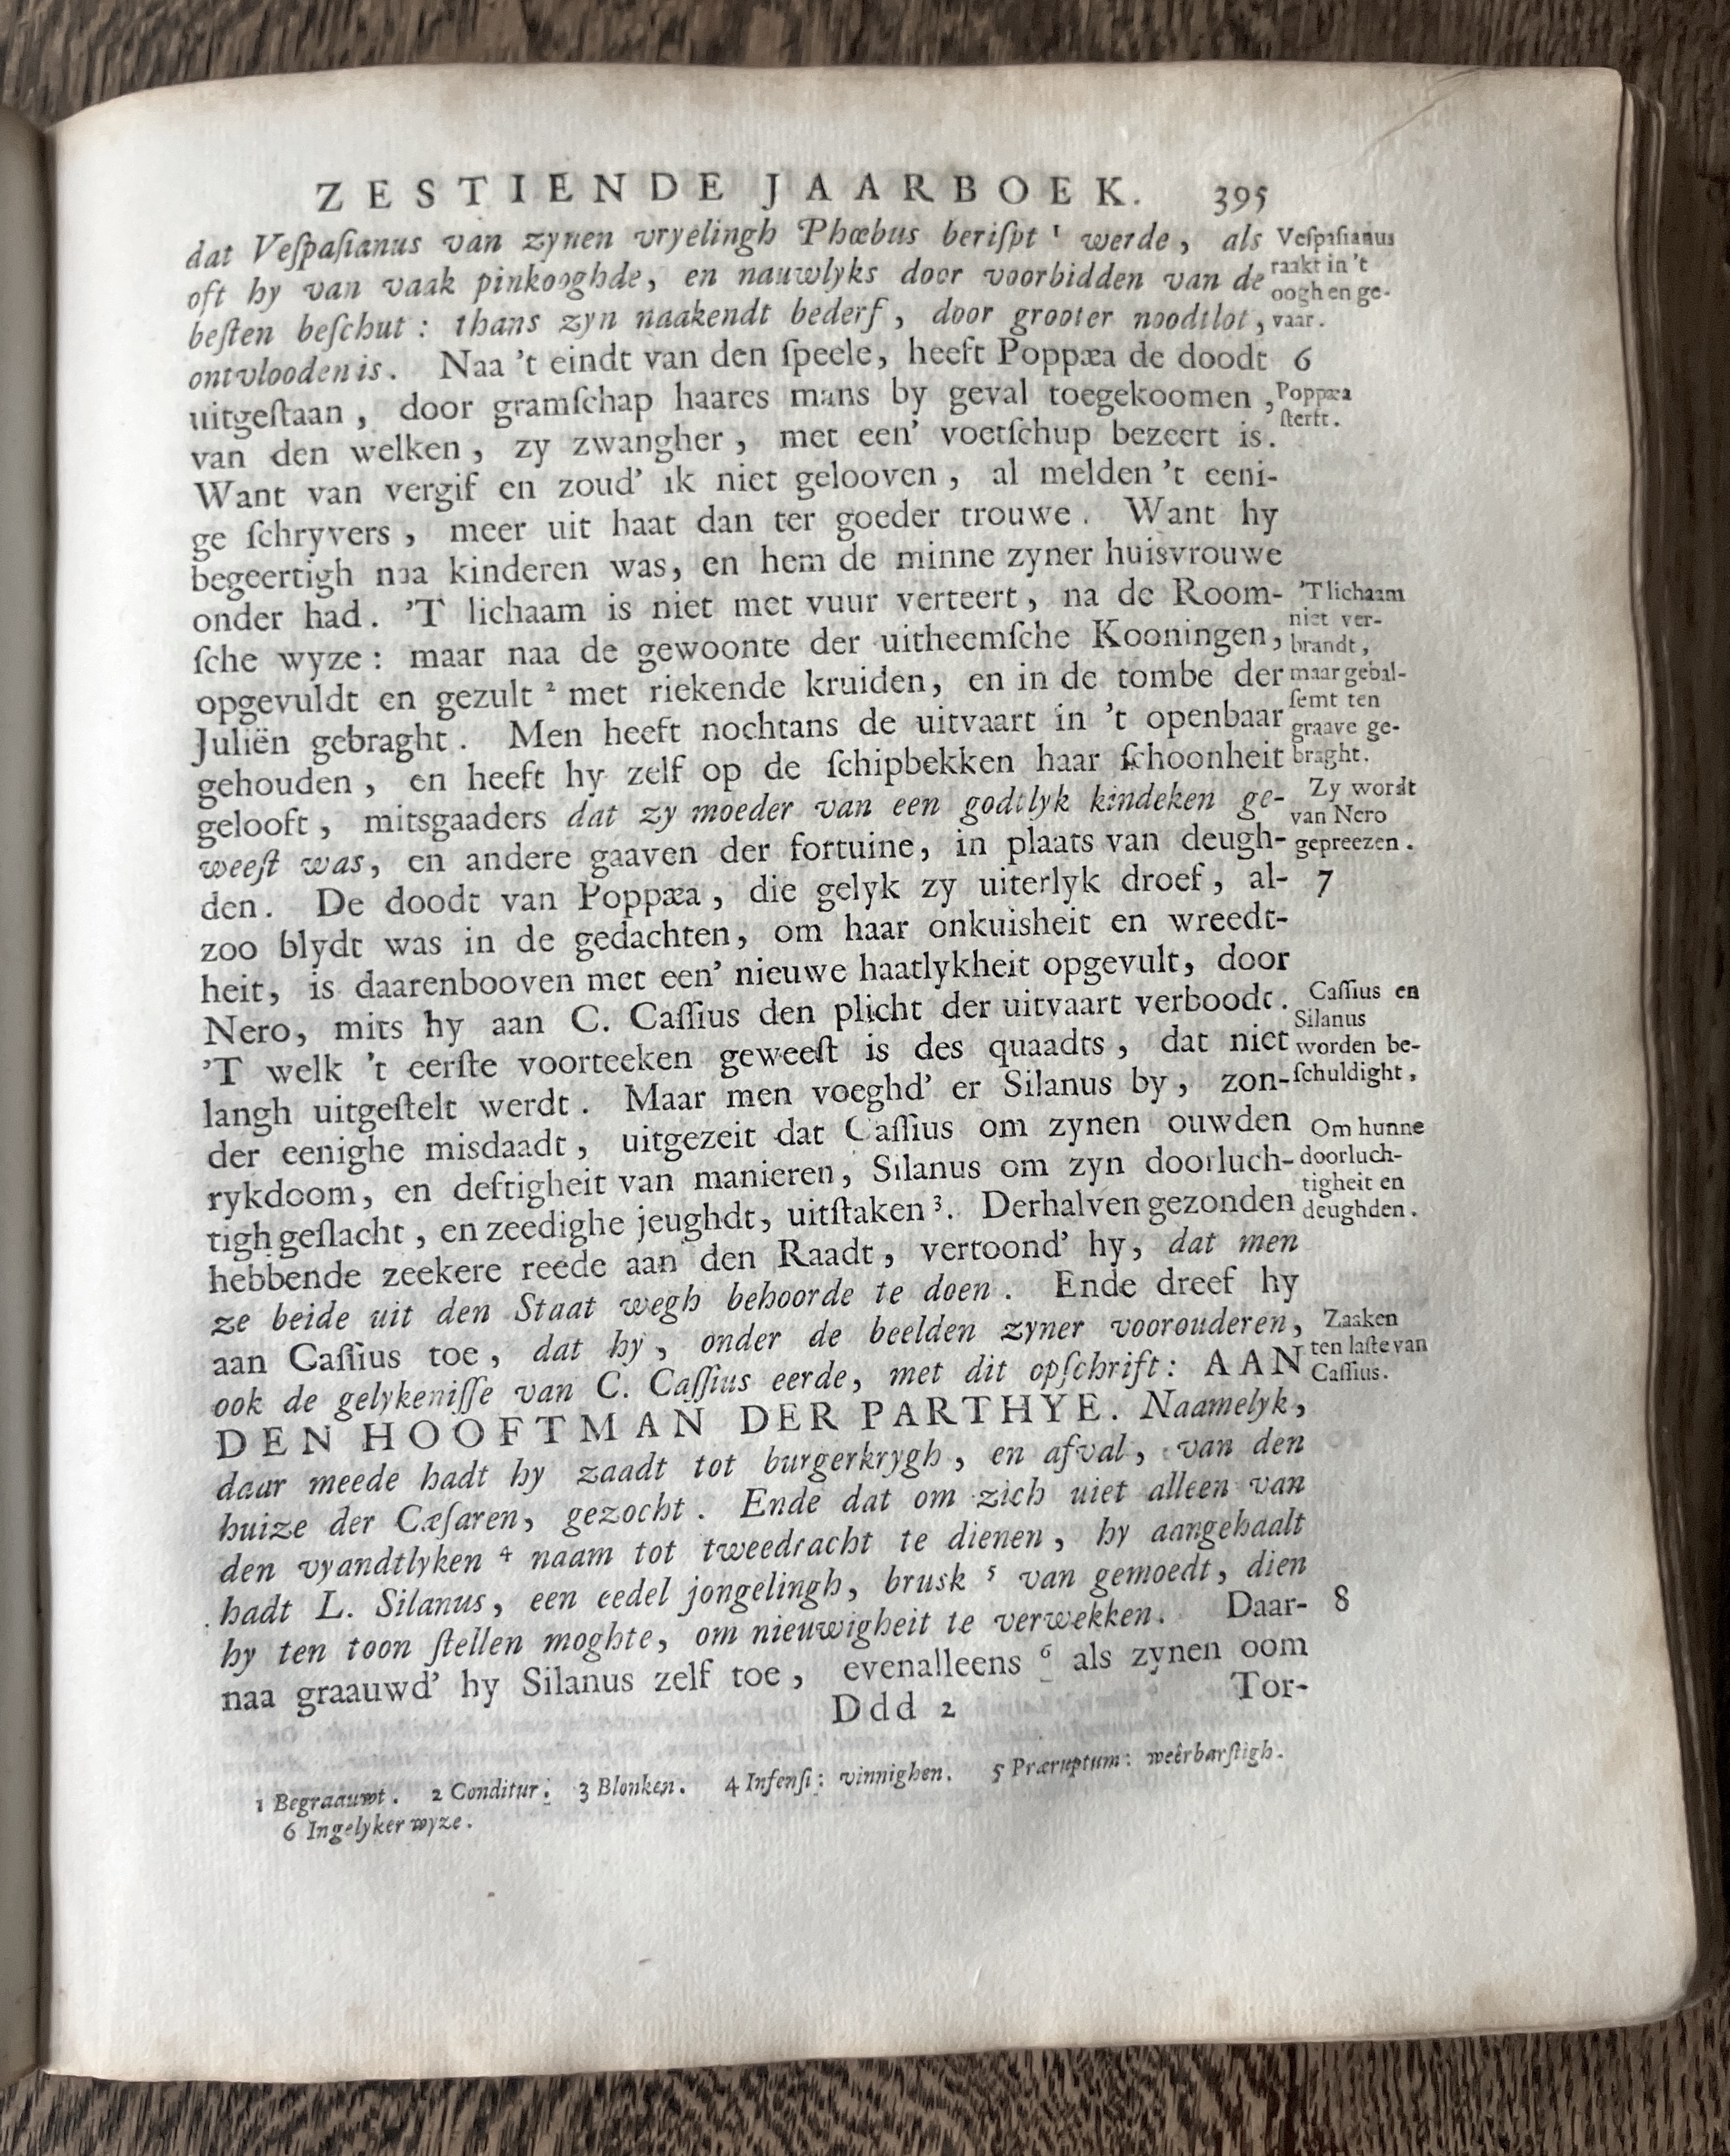 ZESTIENDE JAARBOEK. 395
dat Veſpaſianus van zynen vryelingh Phœbus beriſpt ¹ werde, als
oft hy van vaak pinkooghde, en nauwlyks door voorbidden van de
beſten beſchut: thans zyn naakendt bederf, door grooter noodtlot,
ontvlooden is. Naa 't eindt van den ſpeele, heeft Poppæa de doodt
uitgeſtaan, door gramſchap haares mans by geval toegekoomen,
van den welken, zy zwangher, met een' voetſchup bezeert is.
Want van vergif en zoud' ik niet gelooven, al melden 't eeni-
ge ſchryvers, meer uit haat dan ter goeder trouwe. Want hy
begeertigh naa kinderen was, en hem de minne zyner huisvrouwe
onder had. 'T lichaam is niet met vuur verteert, na de Room-
ſche wyze: maar naa de gewoonte der uitheemſche Kooningen,
opgevuldt en gezult ² met riekende kruiden, en in de tombe der
Juliën gebraght. Men heeft nochtans de uitvaart in 't openbaar
gehouden, en heeft hy zelf op de ſchipbekken haar ſchoonheit
gelooft, mitsgaaders dat zy moeder van een godtlyk kindeken ge-
weeſt was, en andere gaaven der fortuine, in plaats van deugh-
den. De doodt van Poppæa, die gelyk zy uiterlyk droef, al-
zoo blydt was in de gedachten, om haar onkuisheit en wreedt-
heit, is daarenbooven met een' nieuwe haatlykheit opgevult, door
Nero, mits hy aan C. Caſſius den plicht der uitvaart verboodt.
'T welk 't eerſte voorteeken geweeſt is des quaadts, dat niet
langh uitgeſtelt werdt. Maar men voeghd' er Silanus by, zon-
der eenighe misdaadt, uitgezeit dat Caſſius om zynen ouwden
rykdoom, en deftigheit van manieren, Silanus om zyn doorluch-
tigh geſlacht, en zeedighe jeughdt, uitſtaken ³. Derhalven gezonden
hebbende zeekere reede aan den Raadt, vertoond' hy, dat men
ze beide uit den Staat wegh behoorde te doen. Ende dreef hy
aan Caſſius toe, dat hy, onder de beelden zyner voorouderen,
ook de gelykeniſſe van C. Caſſius eerde, met dit opſchrift: AAN
DEN HOOFTMAN DER PARTHYE. Naamelyk,
daar meede hadt hy zaadt tot burgerkrygh, en afval, van den
huize der Cæſaren, gezocht. Ende dat om zich uiet alleen van
den vyandtlyken ⁴ naam tot tweedracht te dienen, hy aangehaalt
hadt L. Silanus, een eedel jongelingh, brusk ⁵ van gemoedt, dien
hy ten toon ſtellen moghte, om nieuwigheit te verwekken. Daar-
naa graauwd' hy Silanus zelf toe, evenalleens ⁶ als zynen oom
Ddd 2 Tor-
Veſpaſianus
raakt in 't
oogh en ge-
vaar.
6
Poppæa
ſterft.
'T lichaam
niet ver-
brandt,
maar gebal-
ſemt ten
graave ge-
braght.
Zy wordt
van Nero
gepreezen.
7
Caſſius en
Silanus
worden be-
ſchuldight,
Om hunne
doorluch-
tigheit en
deughden.
Zaaken
ten laſte van
Caſſius.
8
1 Begraauwt. 2 Conditur: 3 Blonken. 4 Infenſi: vinnighen. 5 Præruptum: weêrbarſtigh.
6 Ingelyker wyze.